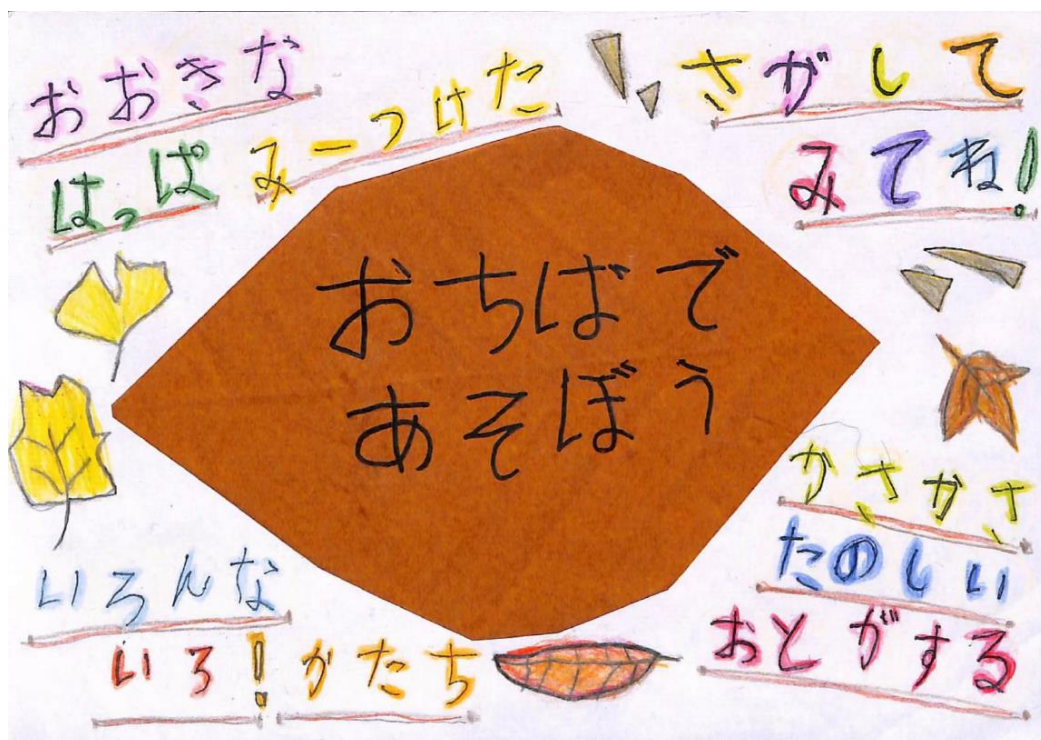 おおきな
はっぱ
みーつけた
さがして
みてね!
おちばで
あそぼう
かさかさ
たのしい
おとがする
いろんな
いろ!かたち